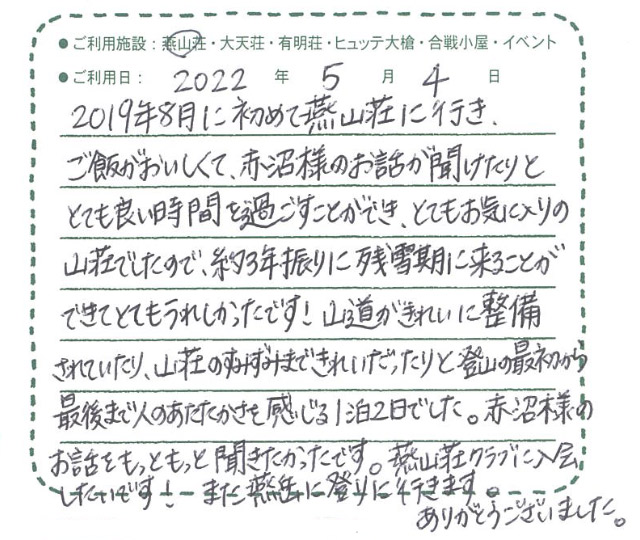 ●ご利用施設：燕山荘・大天荘・有明荘・ヒュッテ大槍・合戦小屋・イベント
●ご利用日： 2022 年 5 月 4 日
2019年8月に初めて燕山荘に行き、
ご飯がおいしくて、赤沼様のお話が聞けたりと
とても良い時間を過ごすことができ、とてもお気に入りの
山荘でしたので、約3年振りに残雪期に来ることが
できてとてもうれしかったです！山道がきれいに整備
されていたり、山荘のすみずみまできれいだったりと登山の最初から
最後まで人のあたたかさを感じる1泊2日でした。赤沼様の
お話をもっともっと聞きたかったです。燕山荘クラブに入会
したいです！また燕岳に登りに行きます。
ありがとうございました。